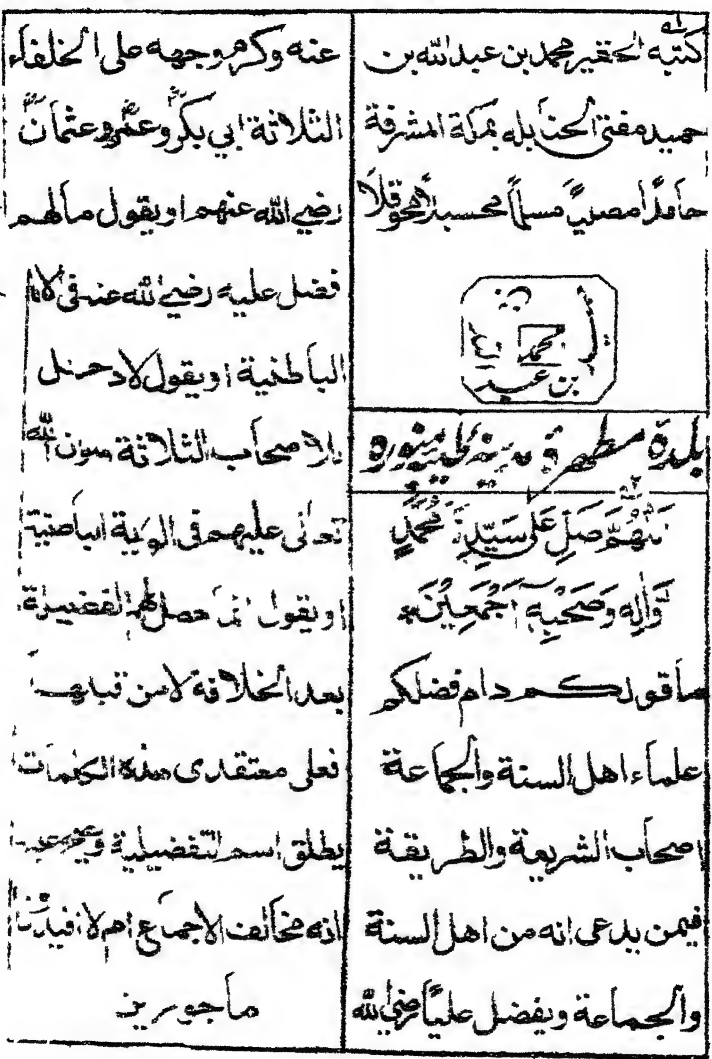 كتبه الحقير محمد بن عبد الله بن
حميد مفتي الحنابله بمكة المشرفة
حامدا مصليا مسلما محسبلا محوقلا
محمد
بن عبد
بلدة مطهره مدينه طيبه منوره
اللهم صل على سيدنا محمد
وآله وصحبه اجمعين
ما قولكم دام فضلكم
علماء اهل السنة والجماعة
اصحاب الشريعة والطريقة
فيمن يدعى انه من اهل السنة
والجماعة ويفضل عليا رضي الله
عنه وكرم وجهه على الخلفاء
الثلاثة ابي بكر وعمر وعثمان
رضي الله عنهم او يقول مالهم
فضل عليه رضي الله عنه في
الباطنية او يقول لا دخل
للاصحاب الثلاثة رضوان الله
تعالى عليهم في الولاية الباطنية
او يقول انما حصل لهم الفضيلة
بعد الخلافة لا من قبلها
فعلى معتقدي هذه الكلمات
يطلق اسم التفضيلية
انه مخالف الاجماع ام لا افيدونا
ماجورين